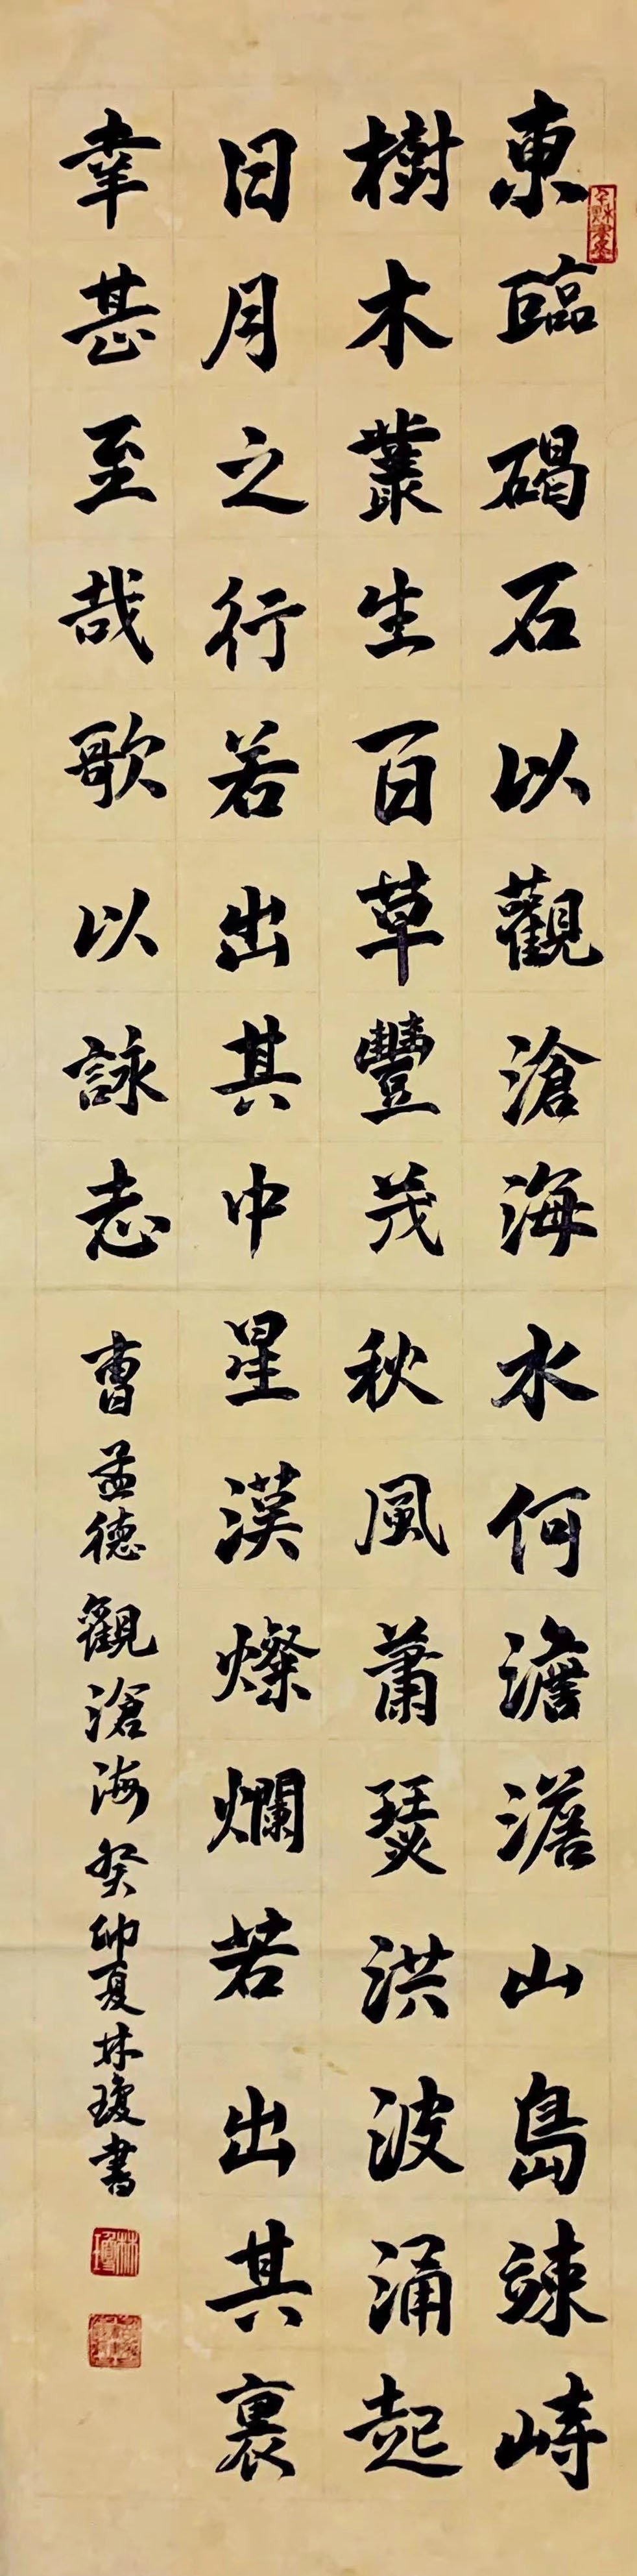 東臨碣石以觀滄海水何澹澹山島竦峙
樹木叢生百草豐茂秋風蕭瑟洪波涌起
日月之行若出其中星漢燦爛若出其裏
幸甚至哉歌以詠志
曹孟德觀滄海癸卯夏林瓊書
林瓊